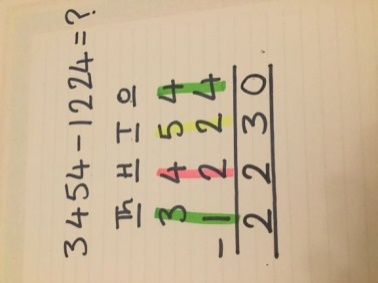 3454-1224=?
Th H T O
3 4 5 4
- 1 2 2 4
2 2 3 0